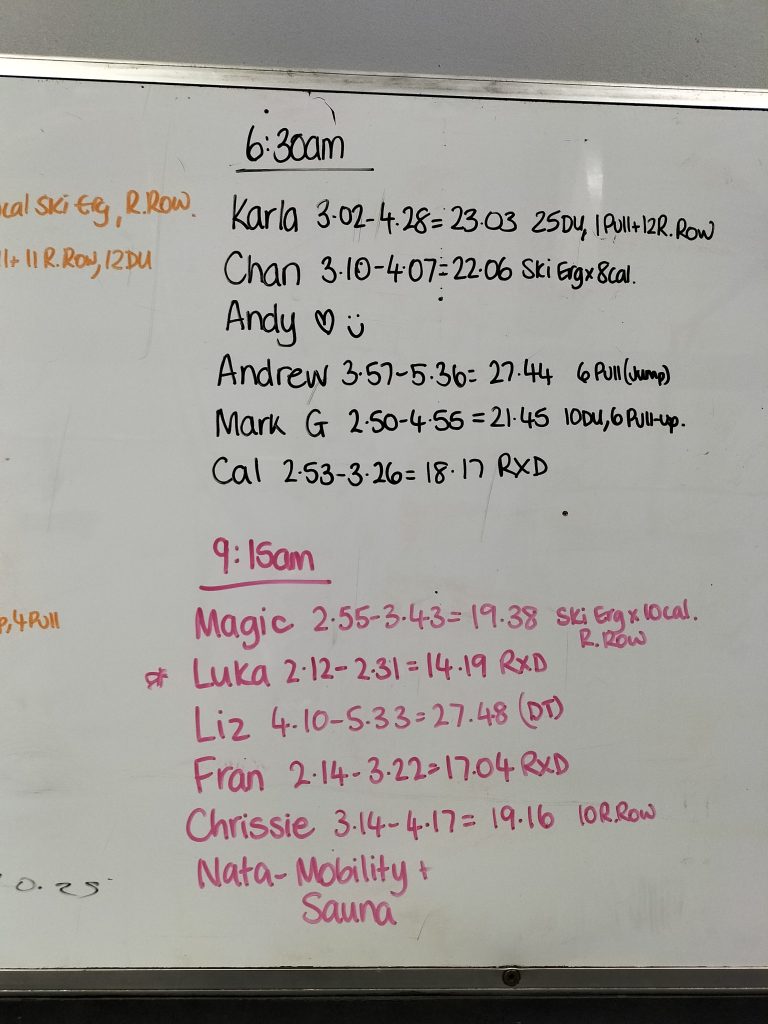 6:30am
Karla 3.02-4.28=23.03 25DU, 1Pull+12R.Row
Chan 3.10-4.07=22.06 Ski Erg x 8cal.
Andy ♡ ü
Andrew 3.57-5.36= 27.44 6 Pull (Jump)
Mark G 2.50-4.55 =21.45 10DU, 6 Pull-up.
Cal 2.53-3.26= 18.17 RXD
9:15am
Magic 2.55-3.43= 19.38 Ski Erg x 10cal.
R.Row
Luka 2.12-2.31=14.19 RXD
Liz 4.10-5.33=27.48 (DT)
Fran 2.14-3.22=17.04 RXD
Chrissie 3.14-4.17= 19.16 10R.Row
Nata- Mobility +
Sauna
cal Ski Erg, R.Row.
+ 11 R.Row, 12DU
, 4 Pull
0.25